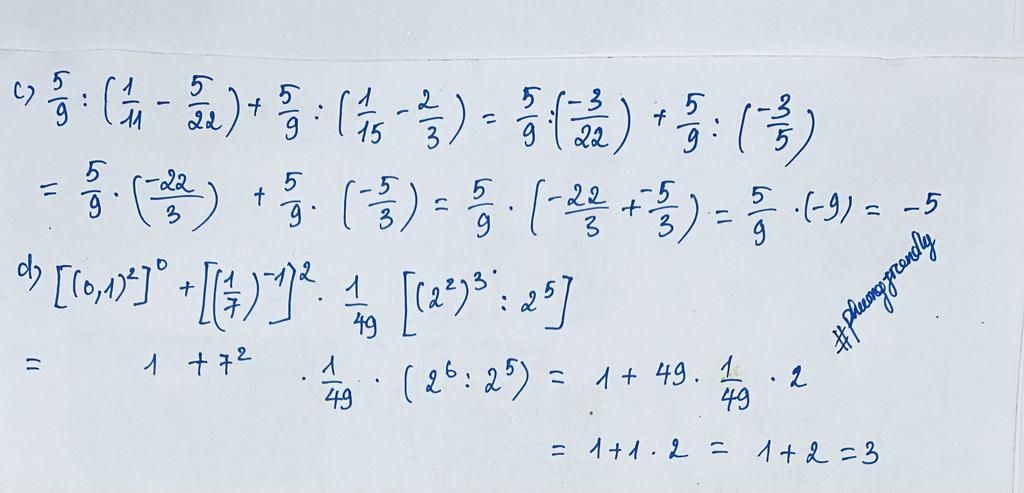 c) 5/9 : (1/11 - 5/22) + 5/9 : (1/15 - 2/3) = 5/9 : (-3/22) + 5/9 : (-3/5)
= 5/9 · (-22/3) + 5/9 · (-5/3) = 5/9 · (-22/3 + -5/3) = 5/9 · (-9) = -5
d) [(0,1)²]⁰ + [(1/7)⁻¹]² · 1/49 [(2²)³ : 2⁵]
= 1 + 7² · 1/49 · (2⁶ : 2⁵) = 1 + 49 · 1/49 · 2
= 1 + 1 · 2 = 1 + 2 = 3